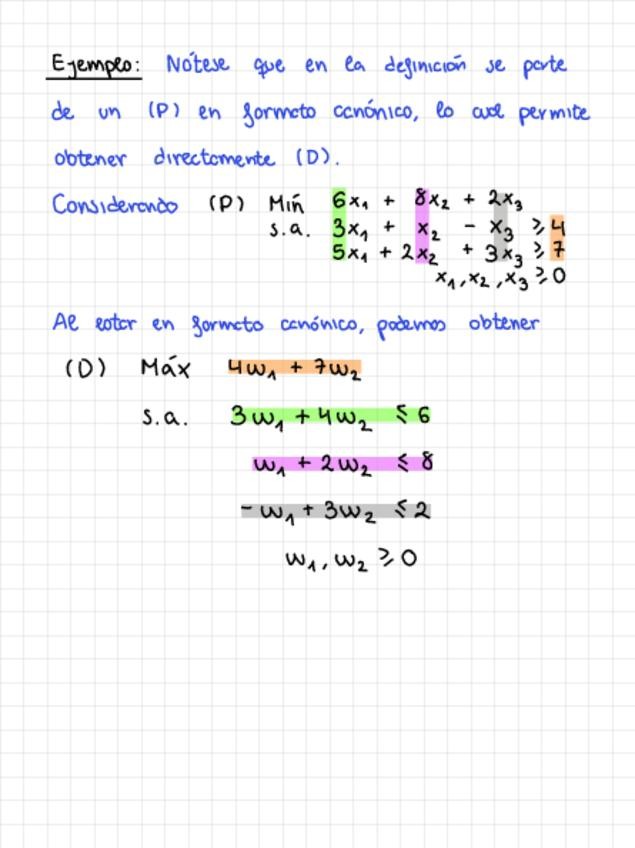 Ejemplo: Nótese que en la definición se parte
de un (P) en formato canónico, lo cual permite
obtener directamente (D).
Considerando (P) Min 6x₁ + 8x₂ + 2x₃
s.a. 3x₁ + x₂ - x₃ ≥ 4
5x₁ + 2x₂ + 3x₃ ≥ 7
x₁, x₂, x₃ ≥ 0
Al estar en formato canónico, podemos obtener
(D) Máx 4w₁ + 7w₂
s.a. 3w₁ + 4w₂ ≤ 6
w₁ + 2w₂ ≤ 8
-w₁ + 3w₂ ≤ 2
w₁, w₂ ≥ 0